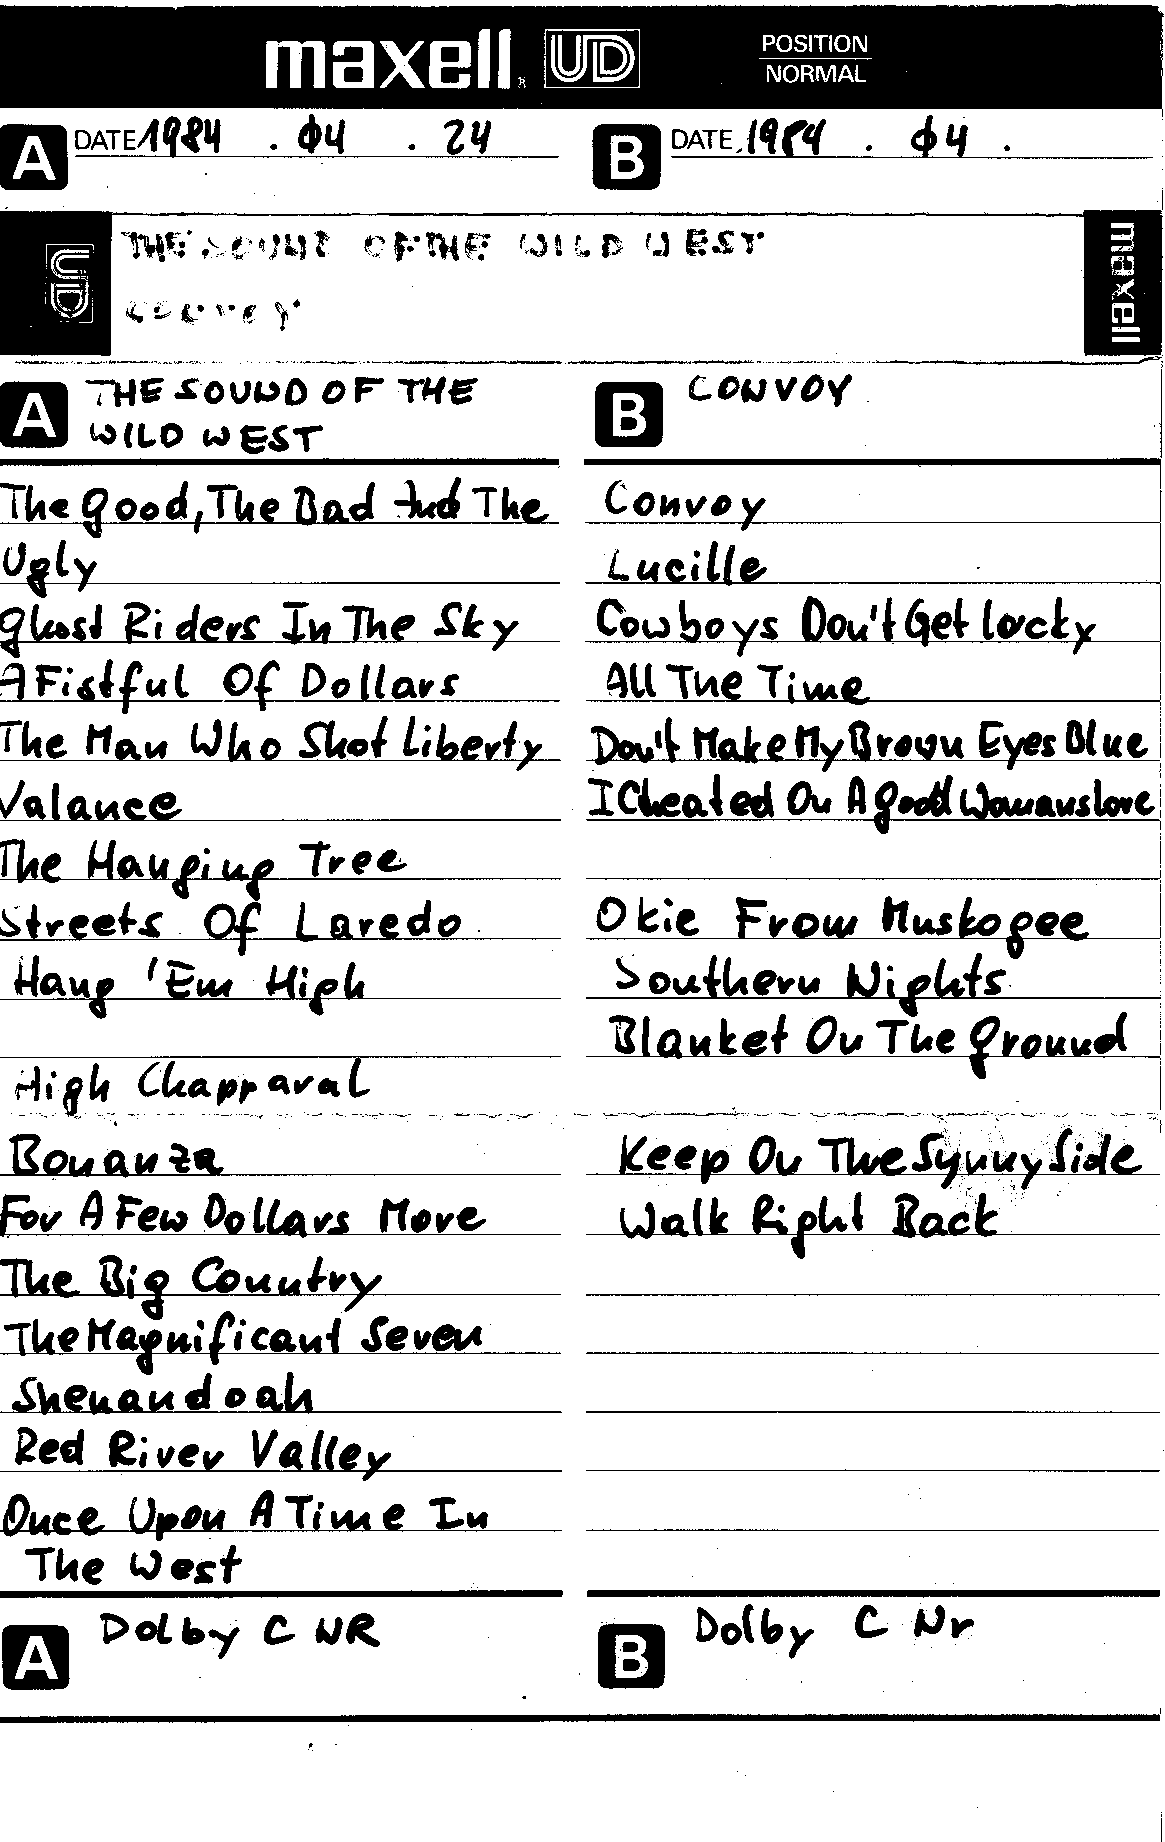 maxell® UD POSITION NORMAL
A DATE 1984 . 04 . 24
B DATE. 1984 . 04 .
UD THE SOUND OF THE WILD WEST maxell
CONVOY
A THE SOUND OF THE
WILD WEST
The Good, The Bad And The
Ugly
Ghost Riders In The Sky
A Fistful Of Dollars
The Man Who Shot Liberty
Valance
The Hanging Tree
Streets Of Laredo
Hang 'Em High
High Chapparal
Bonanza
For A Few Dollars More
The Big Country
The Magnificant Seven
Shenandoah
Red River Valley
Once Upon A Time In
The West
A Dolby C NR
B CONVOY
Convoy
Lucille
Cowboys Don't Get Locky
All The Time
Don't Make My Brown Eyes Blue
I Cheated On A Good Womans love
Okie From Muskogee
Southern Nights
Blanket On The Ground
Keep On The Synny Side
Walk Right Back
B Dolby C Nr